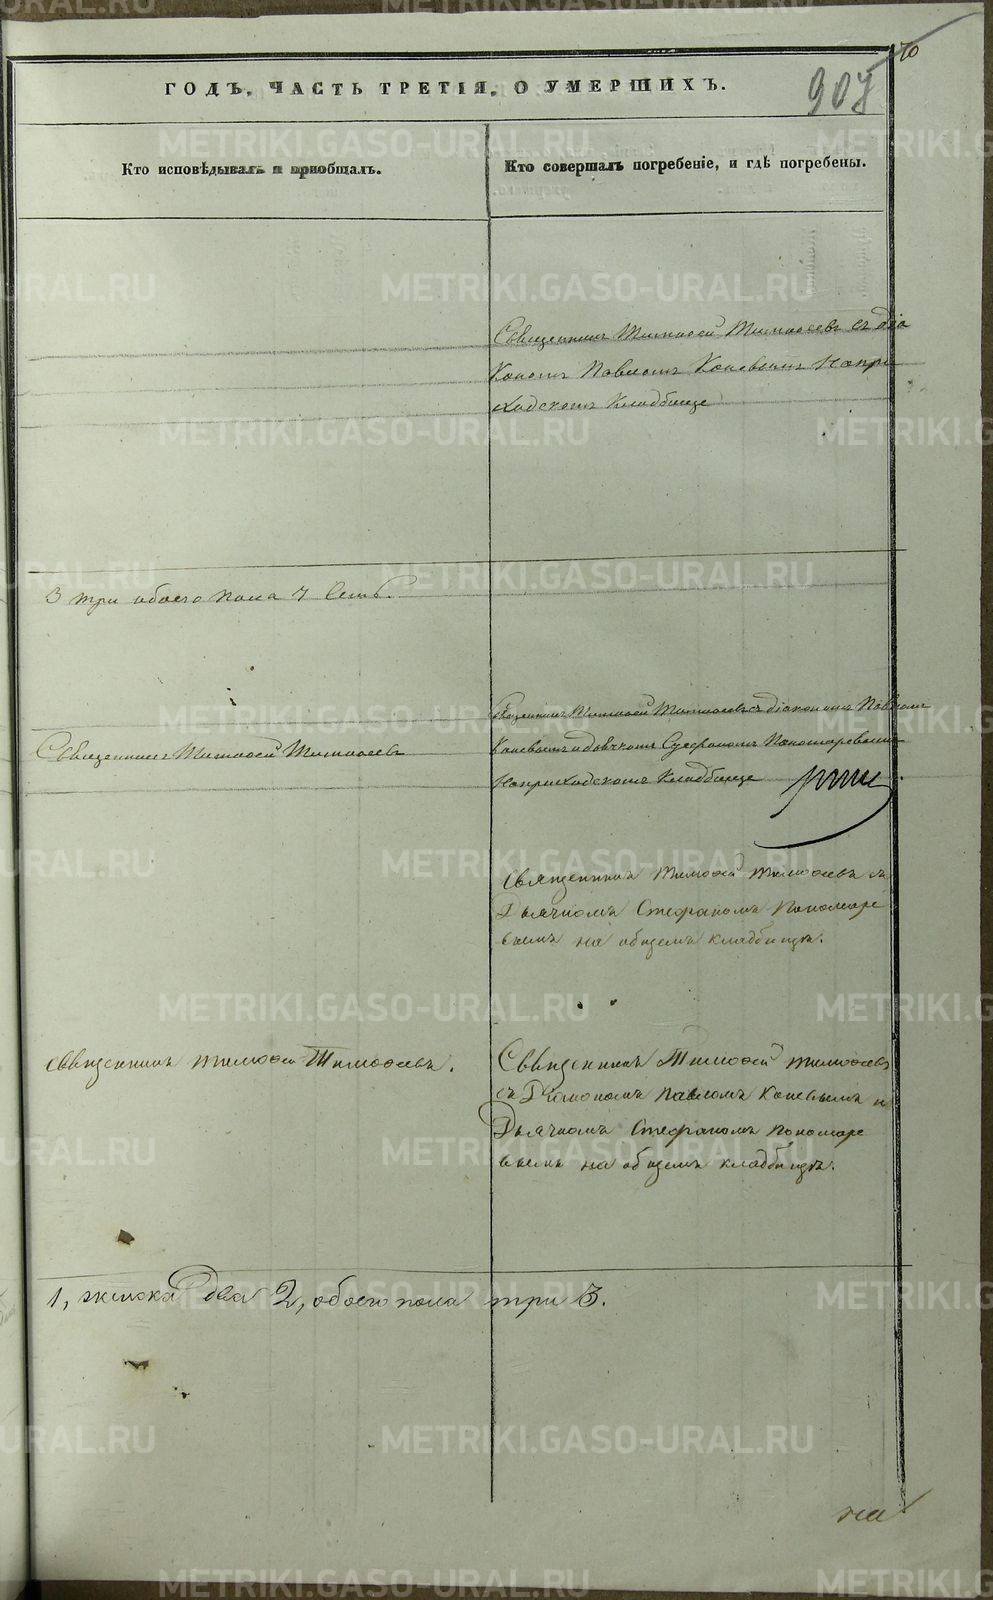 70
907
ГОДЪ, ЧАСТЬ ТРЕТІЯ, О УМЕРШИХЪ.
Кто исповѣдывалъ и пріобщалъ.
Кто совершалъ погребеніе, и гдѣ погребены.
Священникъ Тимоѳей Тимоѳеевъ съ діа
кономъ Павломъ Коневымъ на при
ходскомъ кладбище
3 три обоего пола 7 семь.
Священникъ Тимоѳей Тимоѳеевъ
Священникъ Тимоѳей Тимоѳеевъ съ діакономъ Павломъ
Коневымъ и дьячкомъ Стефаномъ Пономаревымъ
на приходскомъ кладбище
Священникъ Тимоѳей Тимоѳеевъ съ
Дьячкомъ Стефаномъ Пономаре
вымъ на общемъ кладбищѣ.
Священникъ Тимоѳей Тимоѳеевъ.
Священникъ Тимоѳей Тимоѳеевъ
съ Діакономъ Павломъ Коневымъ и
Дьячкомъ Стефаномъ Пономаре
вымъ на общемъ кладбищѣ.
1, женска два 2, обоего пола три 3.
METRIKI.GASO-URAL.RU